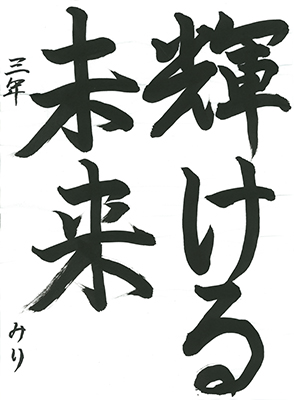 輝ける
未来
三年
みり